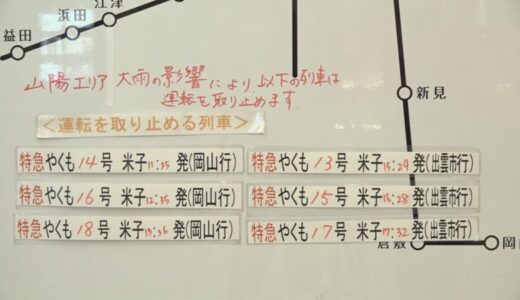 江津
浜田
益田
山陽エリア 大雨の影響により、以下の列車は
運転を取り止めます。
新見
＜運転を取り止める列車＞
特急やくも14号 米子11:35発(岡山行)
特急やくも16号 米子12:35発(岡山行)
特急やくも18号 米子13:36発(岡山行)
特急やくも13号 米子15:29発(出雲市行)
特急やくも15号 米子16:28発(出雲市行)
特急やくも17号 米子17:32発(出雲市行)
倉敷
岡